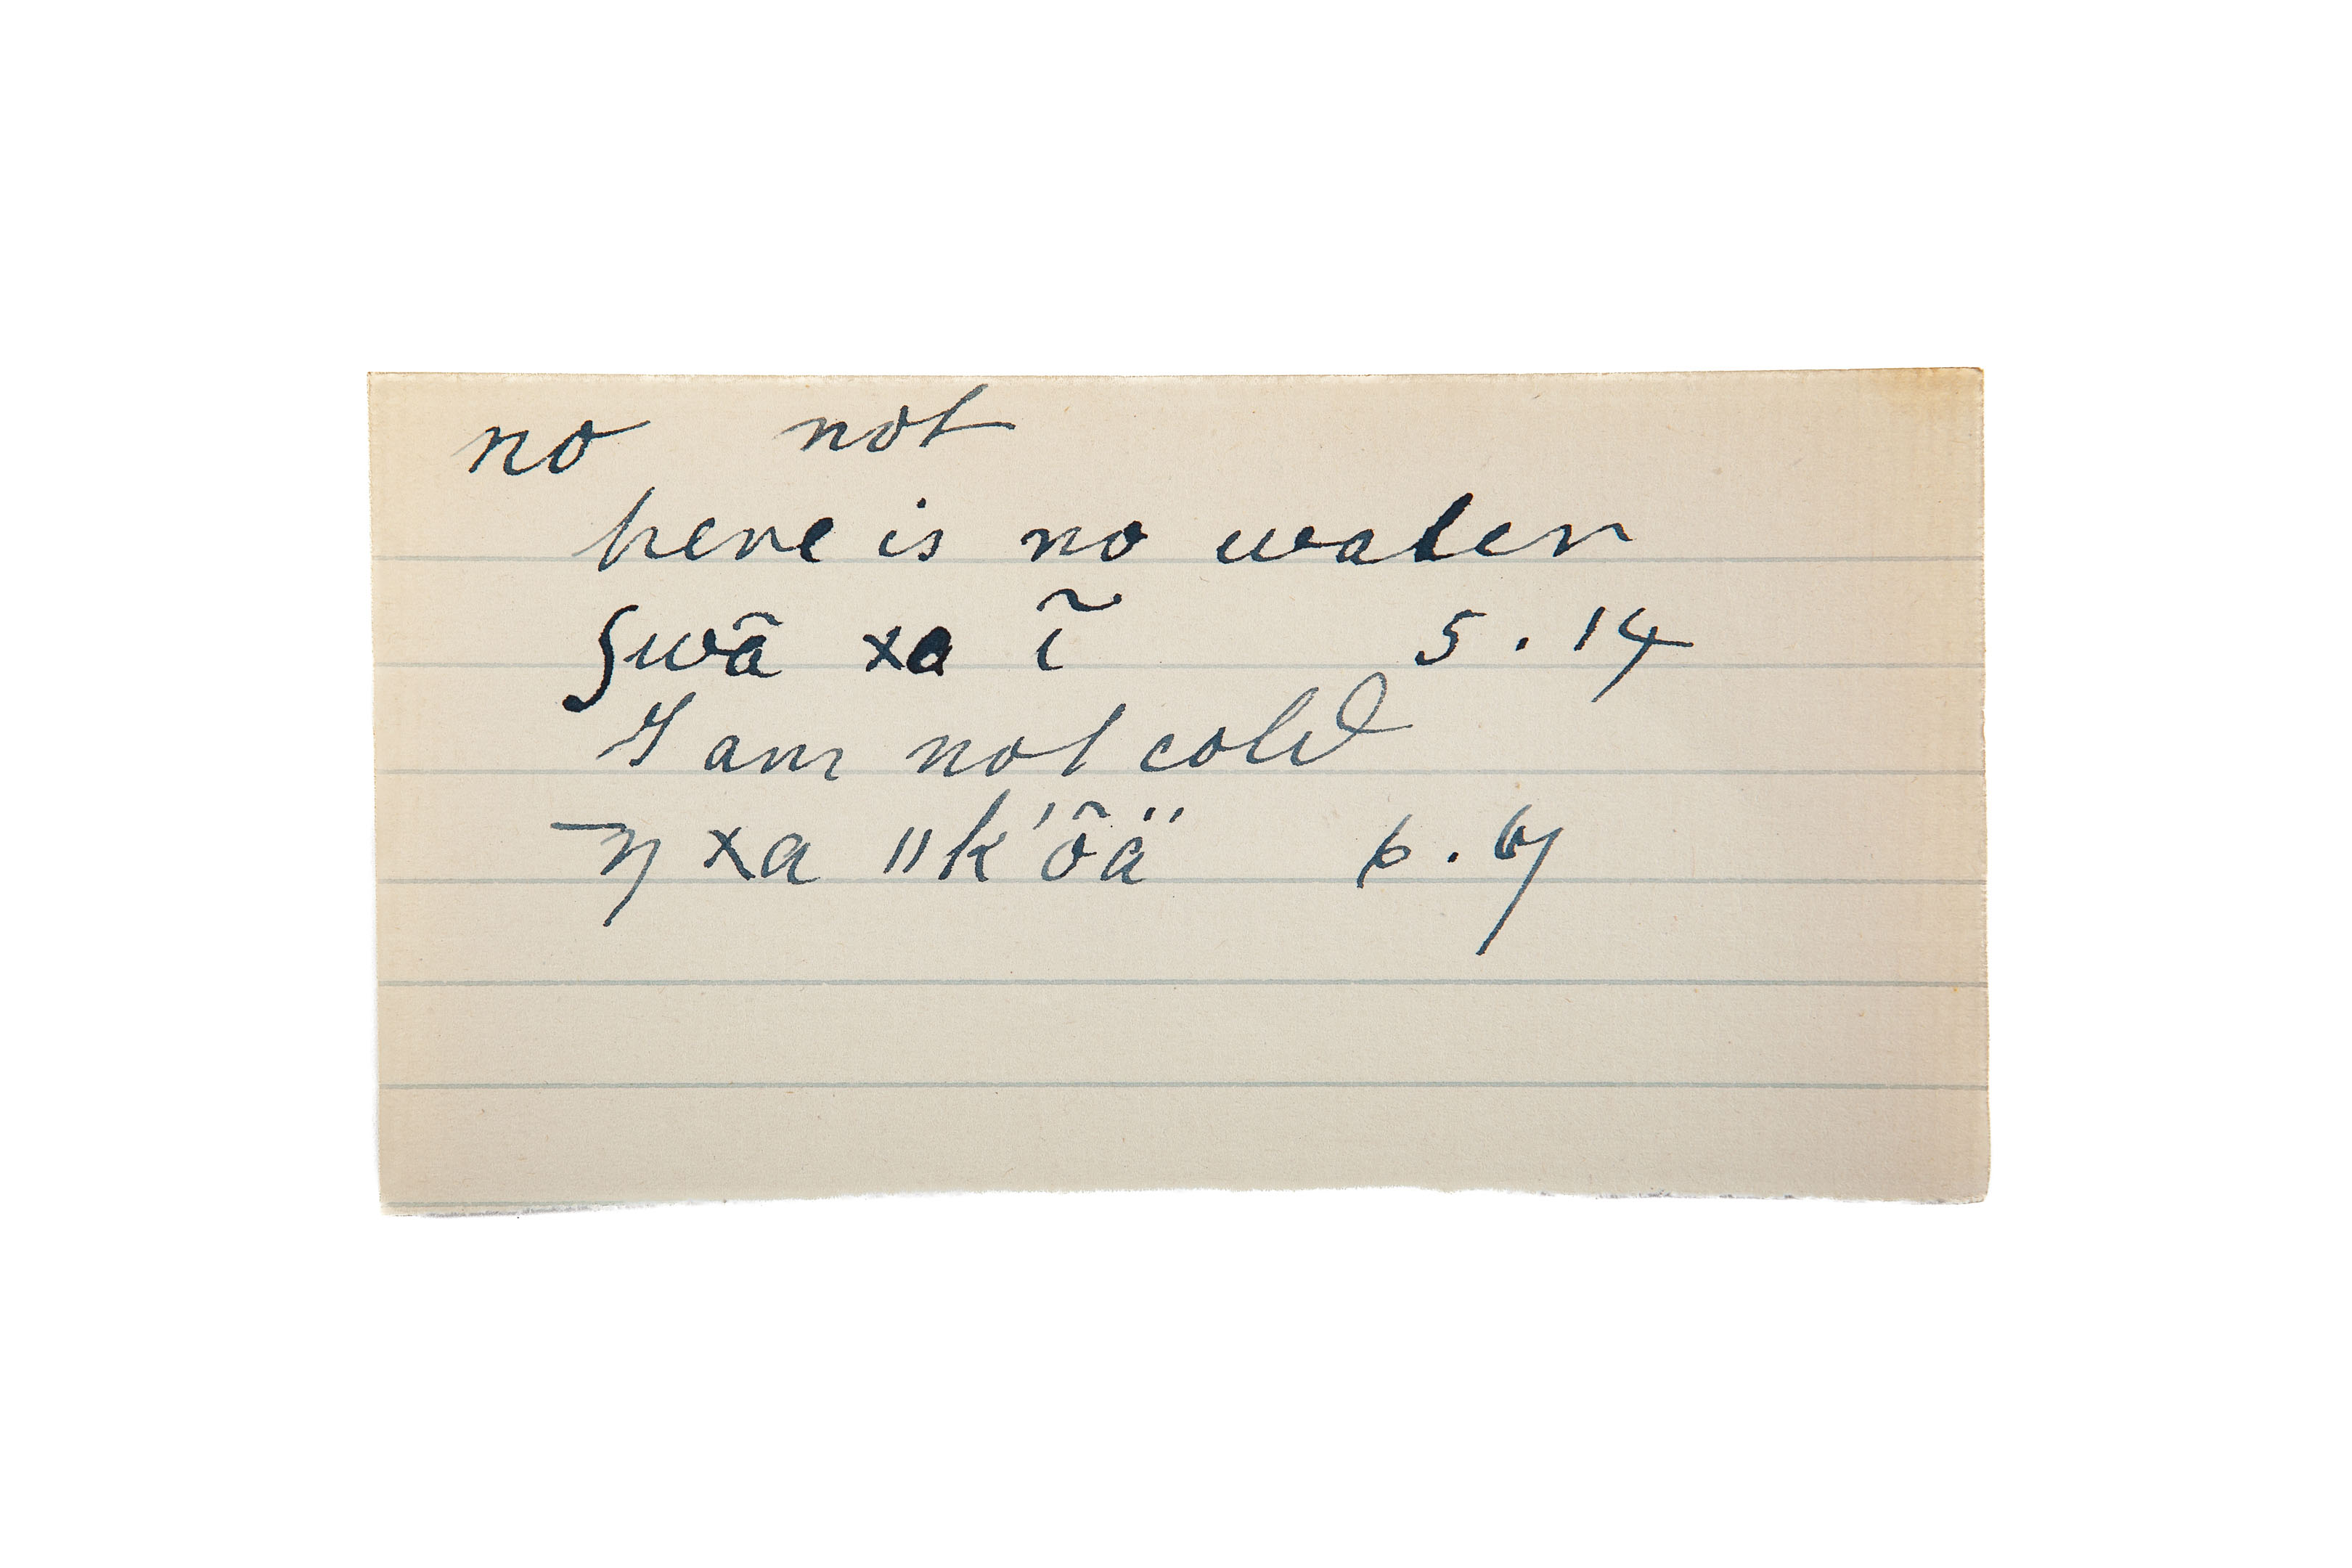 no not
here is no water
ʃwā xa ĩ 5.14
I am not cold
η xa ǁk'õä 6.